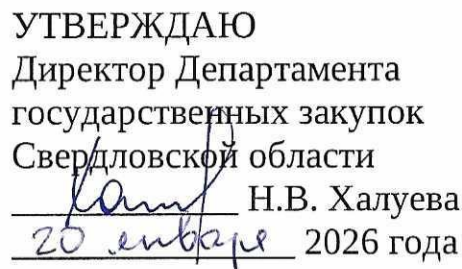 УТВЕРЖДАЮ
Директор Департамента
государственных закупок
Свердловской области
Н.В. Халуева
20 января 2026 года